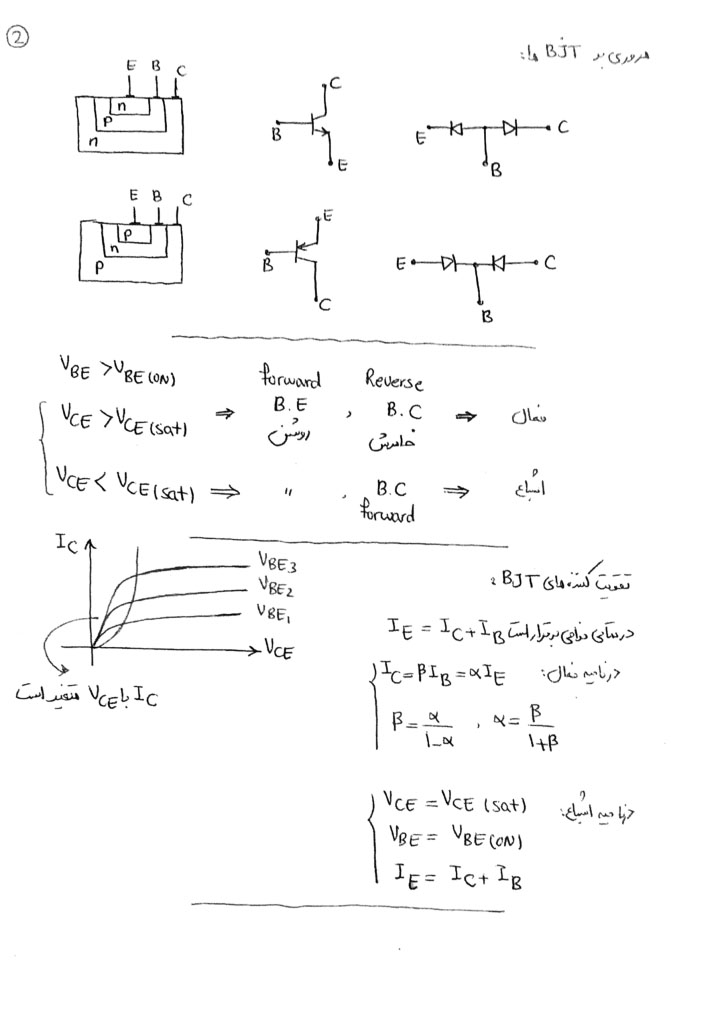 ②
مروری بر BJT ها:
E B C
n
p
n
C
B
E
E C
B
E B C
p
n
p
E
B
C
E C
B
V_BE > V_BE(ON) forward Reverse
V_CE > V_CE(sat) ⇒ B.E , B.C ⇒ فعال
روشن خاموش
V_CE < V_CE(sat) ⇒ " , B.C ⇒ اشباع
forward
I_C
V_BE3
V_BE2
V_BE1
V_CE
I_C با V_CE متغیر است
تقویت کننده های BJT :
در تمامی نواحی برقرار است I_E = I_C + I_B
در ناحیه فعال: I_C = βI_B = αI_E
β = α/(1-α) , α = β/(1+β)
در ناحیه اشباع: V_CE = V_CE(sat)
V_BE = V_BE(ON)
I_E = I_C + I_B